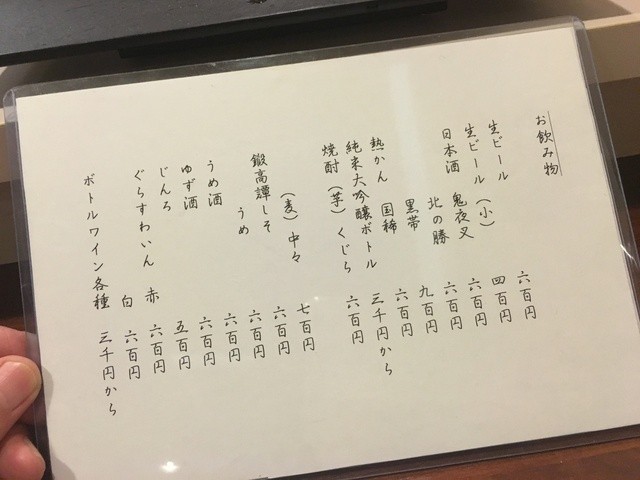 お飲み物
生ビール 六百円
生ビール（小） 四百円
日本酒 鬼夜叉 六百円
北の勝 六百円
黒帯 九百円
熱かん 国稀 六百円
純米大吟醸ボトル 三千円から
焼酎（芋）くじら 六百円
（麦）中々 七百円
鍛高譚しそ 六百円
うめ 六百円
うめ酒 六百円
ゆず酒 六百円
じんろ 五百円
ぐらすわいん 赤 六百円
白 六百円
ボトルワイン各種 三千円から